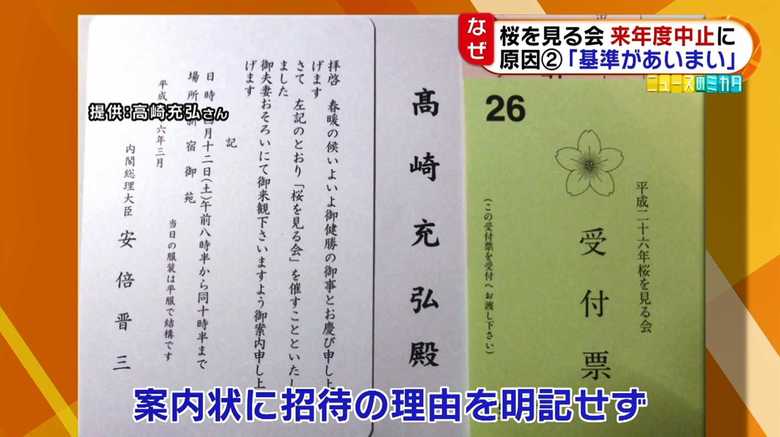 なぜ
桜を見る会 来年度中止に
原因②「基準があいまい」
ニュースのミカタ
提供:高崎充弘さん
拝啓 春暖の候いよいよ御健勝の御事とお慶び申し上
げます
さて 左記のとおり「桜を見る会」を催すことといたし
ました
御夫妻おそろいにて御来観下さいますよう御案内申し上
げます
記
日時 四月十二日(土)午前八時半から同十時半まで
場所 新宿御苑
当日の服装は平服で結構です
平成 六年三月
内閣総理大臣 安倍晋三
髙崎充弘殿
26
平成二十六年桜を見る会
受付票
(この受付票を受付へお渡し下さい)
案内状に招待の理由を明記せず